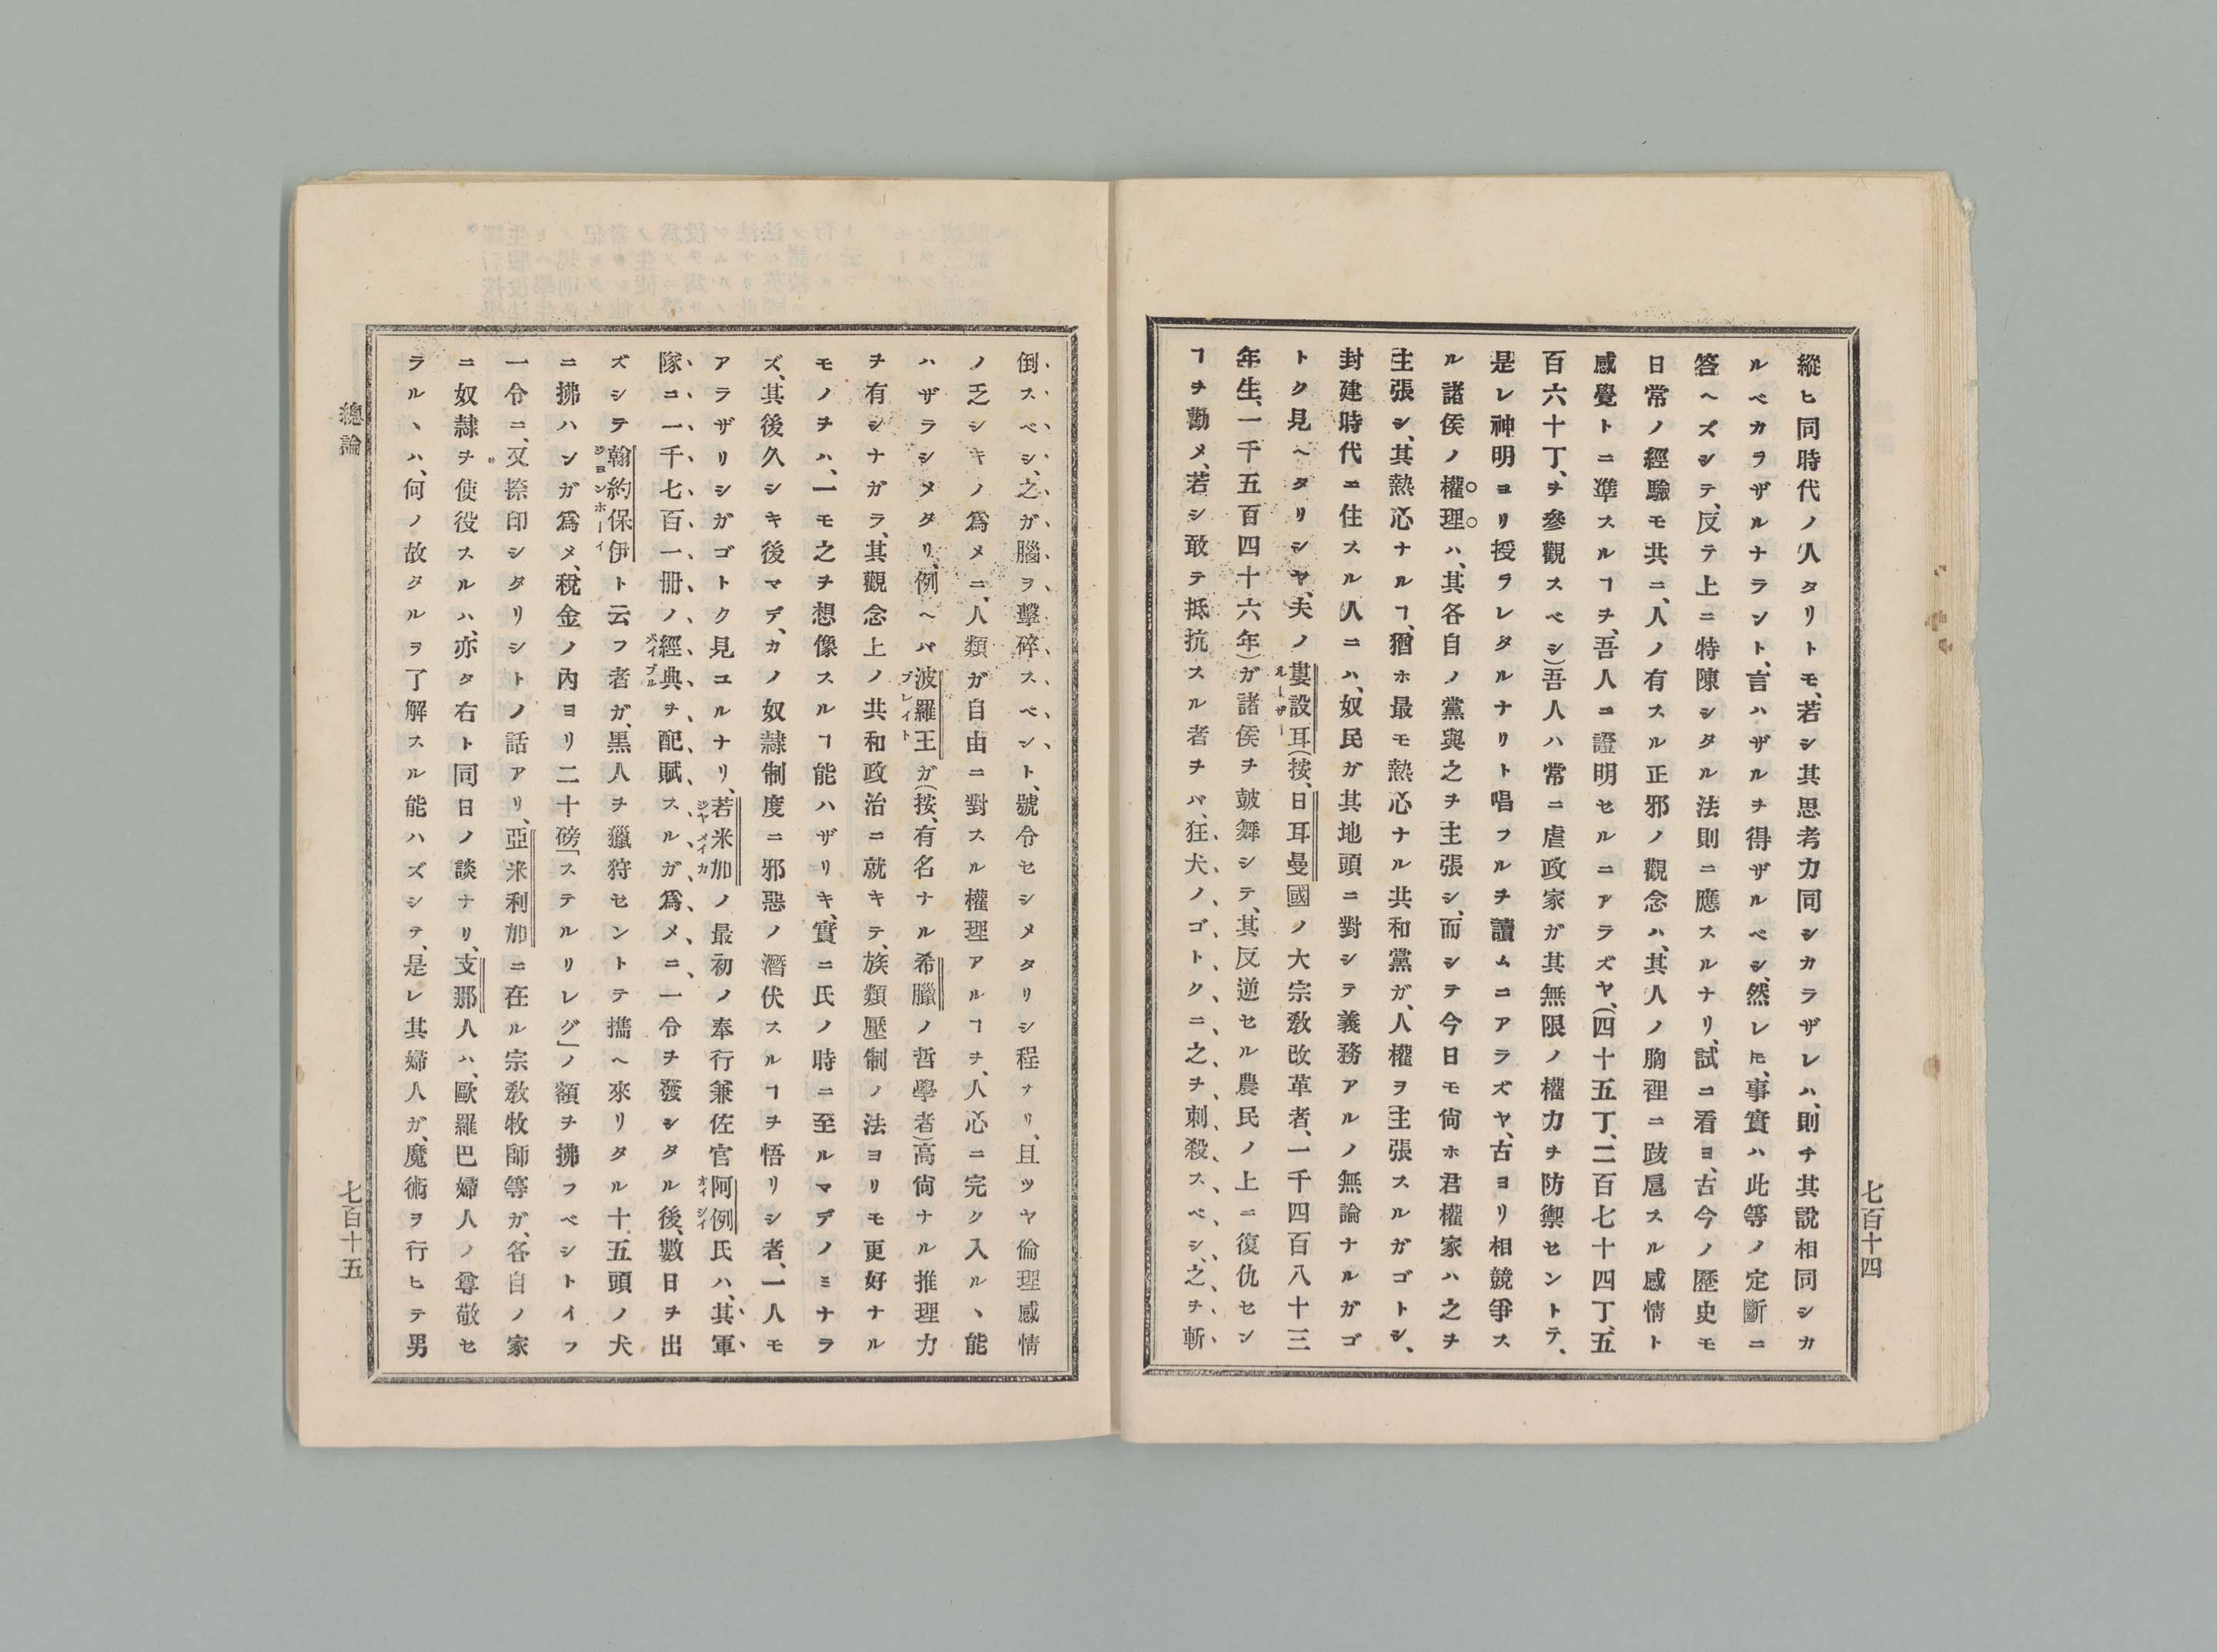 縱ヒ同時代ノ人タリトモ、若シ其思考力同シカラザレハ、則チ其說相同シカ
ルベカラザルナラント、言ハザルヲ得ザルベシ、然レ𪜈、事實ハ此等ノ定斷ニ
答ヘズシテ、反テ上ニ特陳シタル法則ニ應スルナリ、試ニ看ヨ、古今ノ歷史モ
日常ノ經驗モ共ニ、人ノ有スル正邪ノ觀念ハ、其人ノ胸裡ニ跋扈スル感情ト
感覺トニ準スルヿヲ、吾人ニ證明セルニアラズヤ、(四十五丁、二百七十四丁、五
百六十丁、ヲ參觀スベシ)吾人ハ常ニ虐政家ガ其無限ノ權力ヲ防禦セントテ、
是レ神明ヨリ授ラレタルナリト唱フルヲ讀ムニアラズヤ、古ヨリ相競爭ス
ル諸侯ノ權理ハ、其各自ノ黨與之ヲ主張シ、而シテ今日モ尙ホ君權家ハ之ヲ
主張シ、其熱心ナルヿ、猶ホ最モ熱心ナル共和黨ガ、人權ヲ主張スルガゴトシ、
封建時代ニ住スル人ニハ、奴民ガ其地頭ニ對シテ義務アルノ無論ナルガゴ
トク見ヘタリシヤ、夫ノ婁設耳(按、日耳曼國ノ大宗敎改革者、一千四百八十三
年生、一千五百四十六年)ガ諸侯ヲ皷舞シテ、其反逆セル農民ノ上ニ復仇セン
ヿヲ勸メ、若シ敢テ抵抗スル者ヲバ、狂犬ノゴトクニ之ヲ刺殺スベシ、之ヲ斬
七百十四
倒スベシ、之ガ腦ヲ擊碎スベシト、號令セシメタリシ程ナリ、且ツヤ倫理感情
ノ乏シキノ爲メニ、人類ガ自由ニ對スル權理アルヿヲ、人心ニ完ク入ルヽ能
ハザラシメタリ、例ヘバ波羅王ガ(按、有名ナル希臘ノ哲學者)高尙ナル推理力
ヲ有シナガラ、其觀念上ノ共和政治ニ就キテ、族類壓制ノ法ヨリモ更好ナル
モノヲハ、一モ之ヲ想像スルヿ能ハザリキ、實ニ氏ノ時ニ至ルマデノミナラ
ズ、其後久シキ後マデ、カノ奴隷制度ニ邪惡ノ潛伏スルヿヲ悟リシ者、一人モ
アラザリシガゴトク見ユルナリ、若米加ノ最初ノ奉行兼佐官阿例氏ハ、其軍
隊ニ一千七百一册ノ經典ヲ配賦スルガ爲メニ、一令ヲ發シタル後、數日ヲ出
ズシテ翰約保伊ト云フ者ガ、黑人ヲ獵狩セントテ攜ヘ來リタル十五頭ノ犬
ニ拂ハンガ爲メ、稅金ノ內ヨリ二十磅「ステルリレグ」ノ額ヲ拂フベシトイフ
一令ニ、又捺印シタリシトノ話アリ、亞米利加ニ在ル宗敎牧師等ガ、各自ノ家
ニ奴隷ヲ使役スルハ、亦タ右ト同日ノ談ナリ、支那人ハ、歐羅巴婦人ノ尊敬セ
ラルヽハ、何ノ故タルヲ了解スル能ハズシテ、是レ其婦人ガ、魔術ヲ行ヒテ男
總論
七百十五